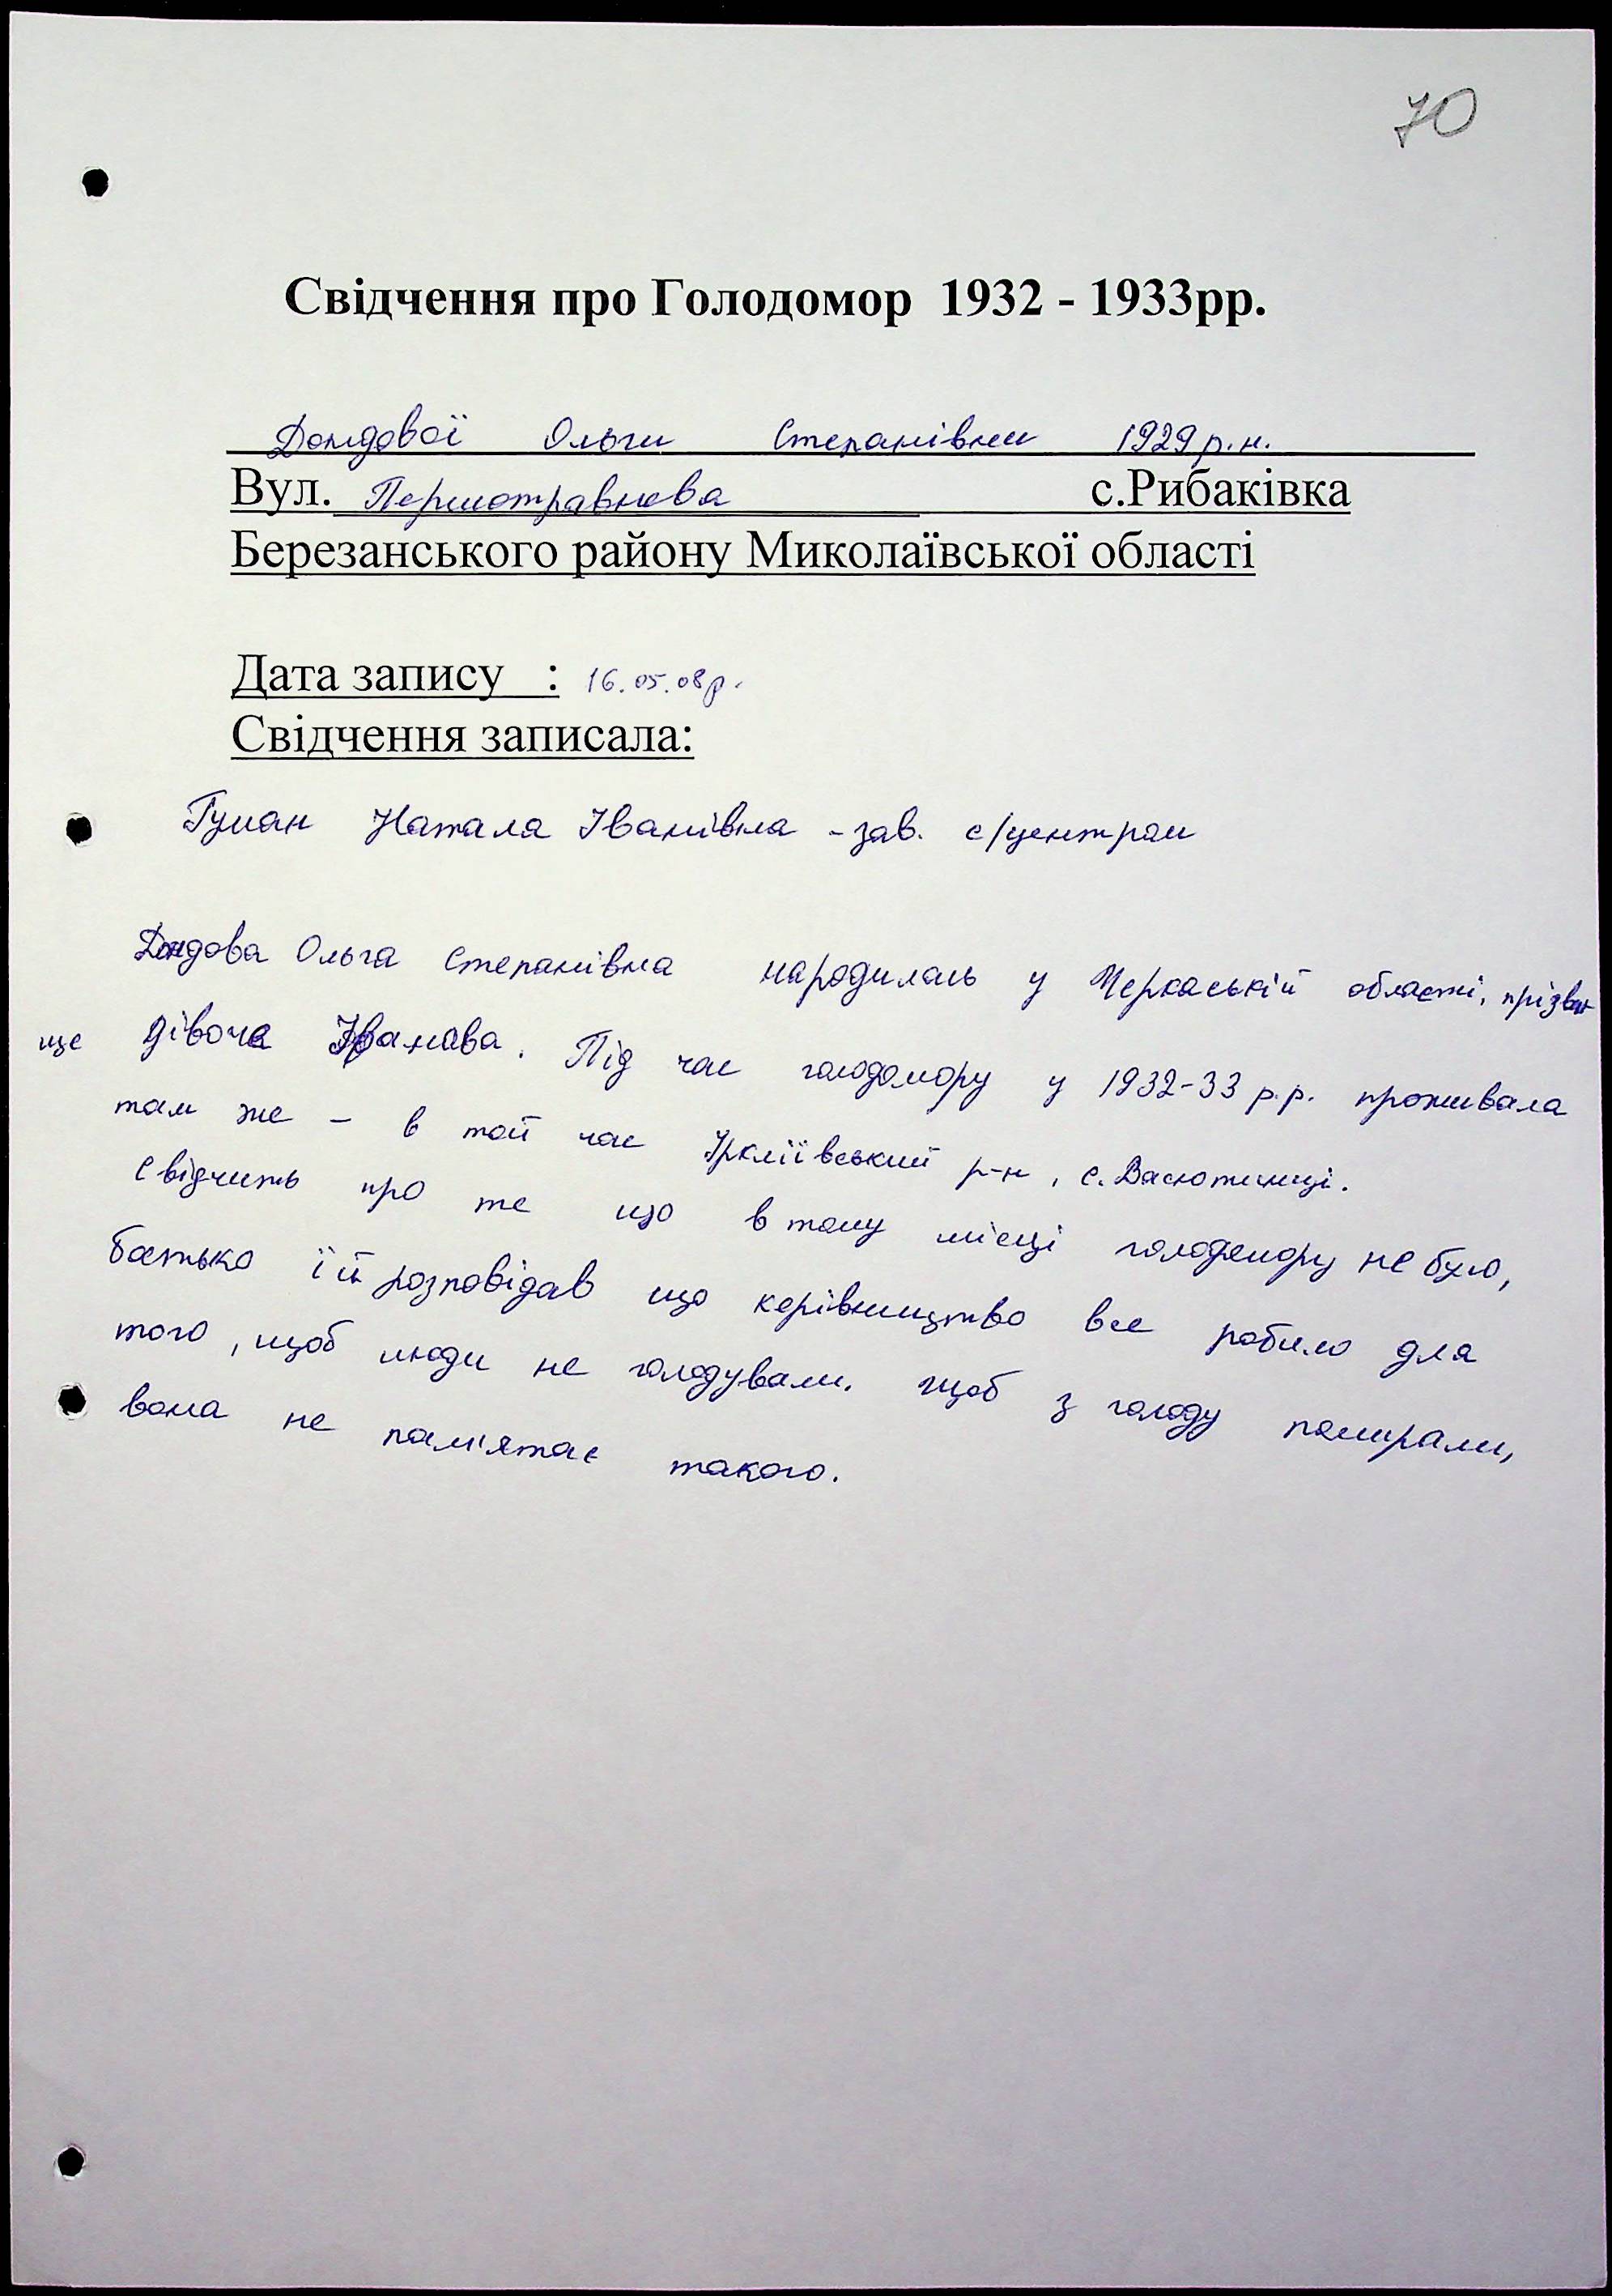 70
Свідчення про Голодомор 1932 - 1933рр.
Дондової Ольги Степанівни 1929 р.н.
Вул. Першотравнева с.Рибаківка
Березанського району Миколаївської області
Дата запису : 16.05.08р.
Свідчення записала:
Гуман Натала Іванівна - зав. с/центром
Дондова Ольга Степанівна народилась у Черкаській області, прізви
ще дівоче Іванова. Під час голодомору у 1932-33 р.р. проживала
там же - в той час Іркліївський р-н, с. Васютинці.
Свідчить про те що в тому місці голодомору не було,
батько їй розповідав що керівництво все робило для
того, щоб люди не голодували. Щоб з голоду помирали,
вона не пам'ятає такого.